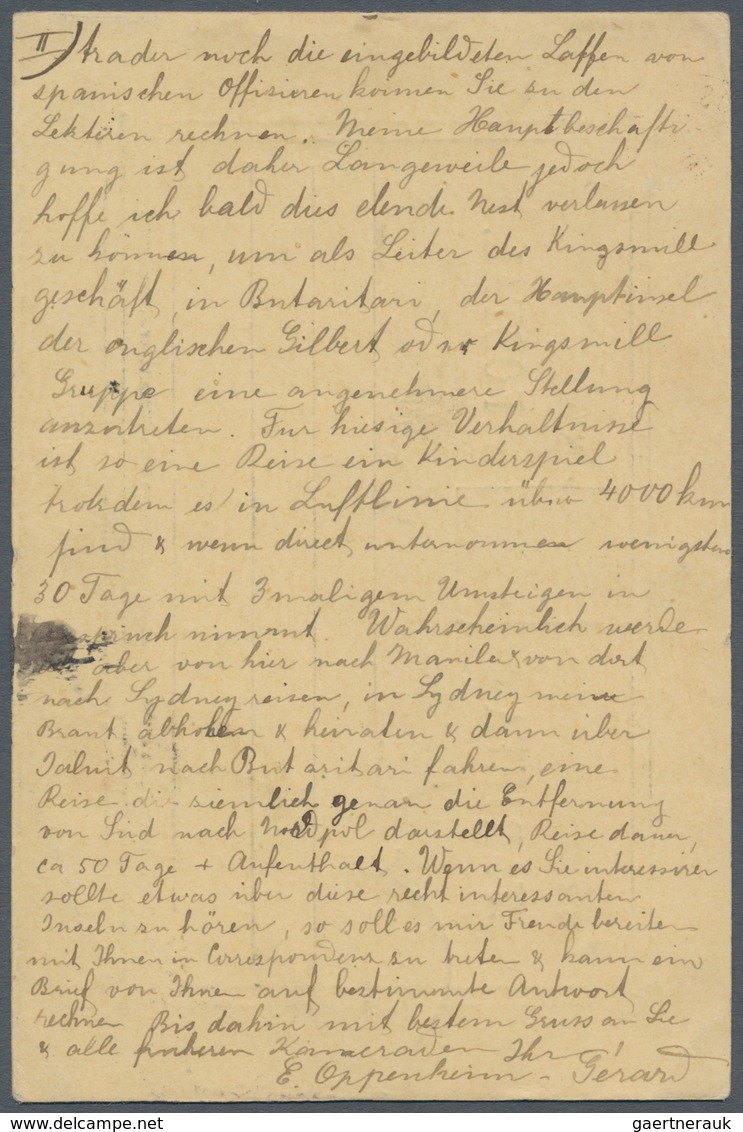 II) trader noch die eingebildeten Laffen von
spanischen Offizieren können Sie zu den
rechnen. Meine Hauptbeschäfti
gung ist daher Langeweile jedoch
hoffe ich bald dies elende Nest verlassen
zu können, um als Leiter des Kingsmill
geschäft in Butaritari, der Hauptinsel
der englischen Gilbert oder Kingsmill
Gruppe eine angenehmere Stellung
anzutreten. Für hiesige Verhältnisse
ist so eine Reise ein Kinderspiel
trotzdem es in Luftlinie über 4000 km
sind & wenn direct unternommen wenigstens
30 Tage mit 3maligem Umsteigen in
spruch nimmt. Wahrscheinlich werde
aber von hier nach Manila & von dort
nach Sydney reisen, in Sydney meine
Braut abholen & heiraten & dann über
Jaluit nach Butaritari fahren, eine
Reise die ziemlich genau die Entfernung
von Süd nach Nordpol darstellt, Reisedauer,
ca 50 Tage + Aufenthalt. Wenn es Sie interessiren
sollte etwas über diese recht interessanten
Inseln zu hören, so soll es mir Freude bereiten
mit Ihnen in Correspondenz zu treten & kann ein
Brief von Ihnen auf bestimmte Antwort
rechnen Bis dahin mit bestem Gruss an Sie
& alle früheren Kameraden Ihr
E. Oppenheim - Gérard
gaertnerauk